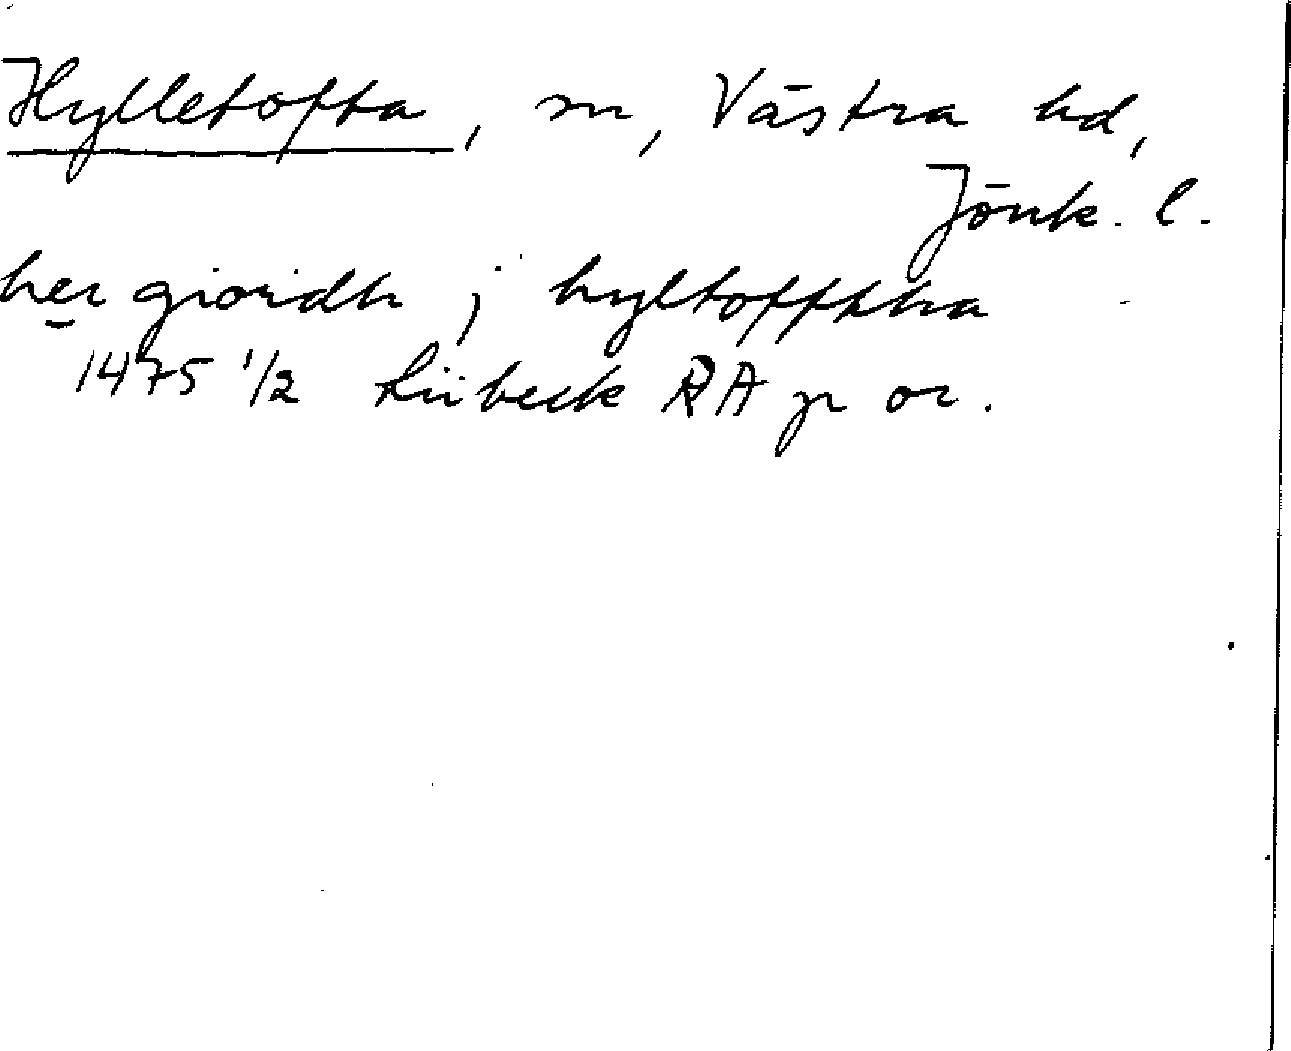 Hylletofta, sn, Västra hd,
Jönk. l.
her giordh j hyltofftha
1475 1/2 Lübeck RA pr or.